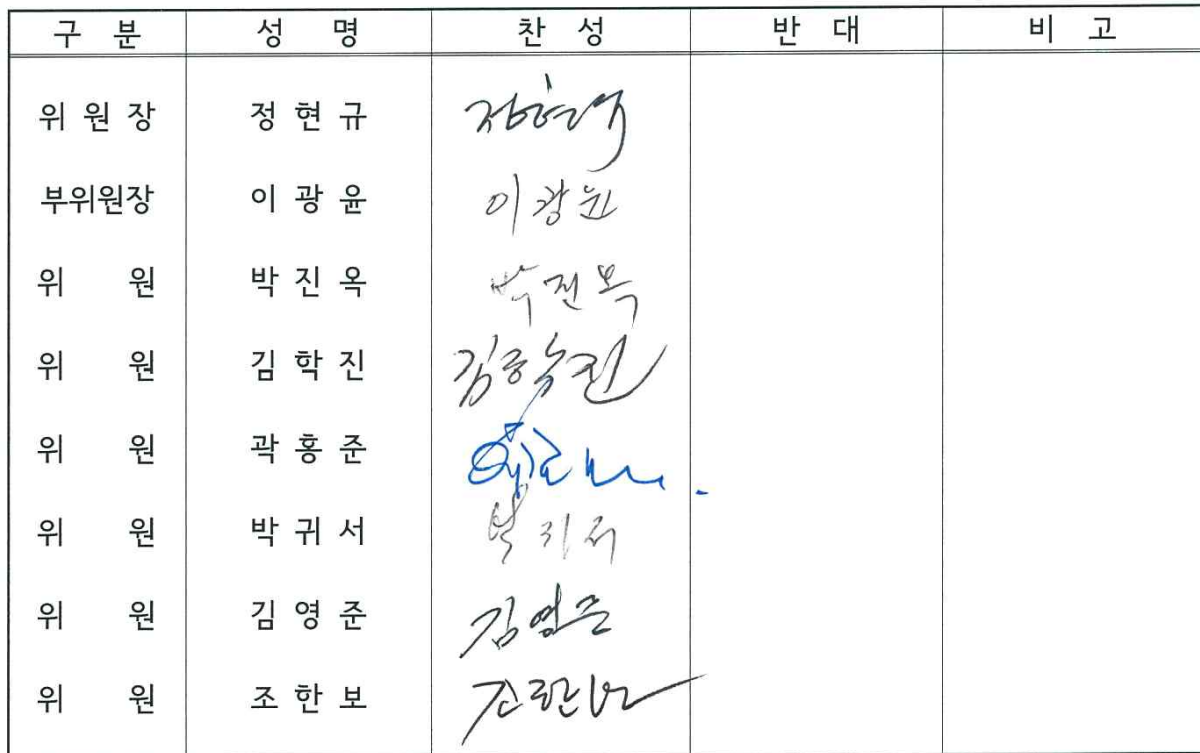 구 분 성 명 찬 성 반 대 비 고
위 원 장 정 현 규 정현규
부위원장 이 광 윤 이광윤
위 원 박 진 옥 박진옥
위 원 김 학 진
위 원 곽 홍 준
위 원 박 귀 서 박귀서
위 원 김 영 준 김영준
위 원 조 한 보